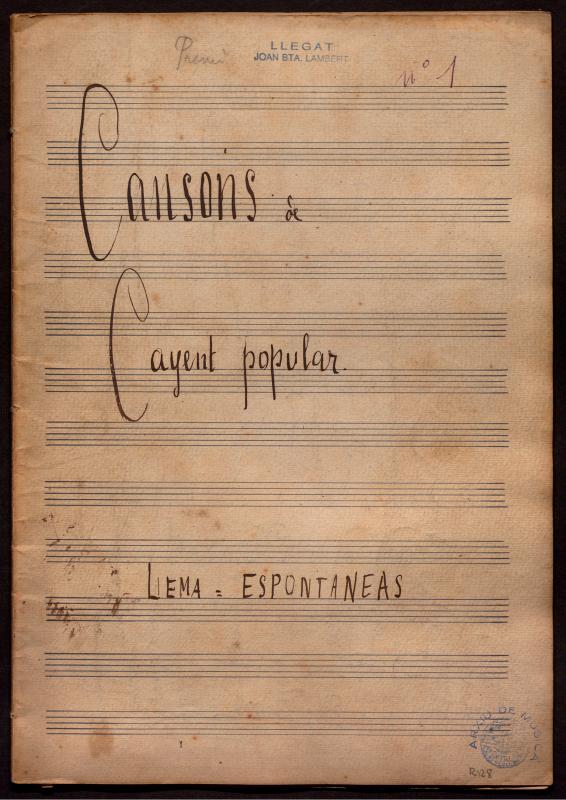 Premi
LLEGAT
JOAN BTA. LAMBERT
nº 1
Cansons de
Cayent popular.
LLEMA = ESPONTANEAS
ARXIU DE MUSICA
R.128